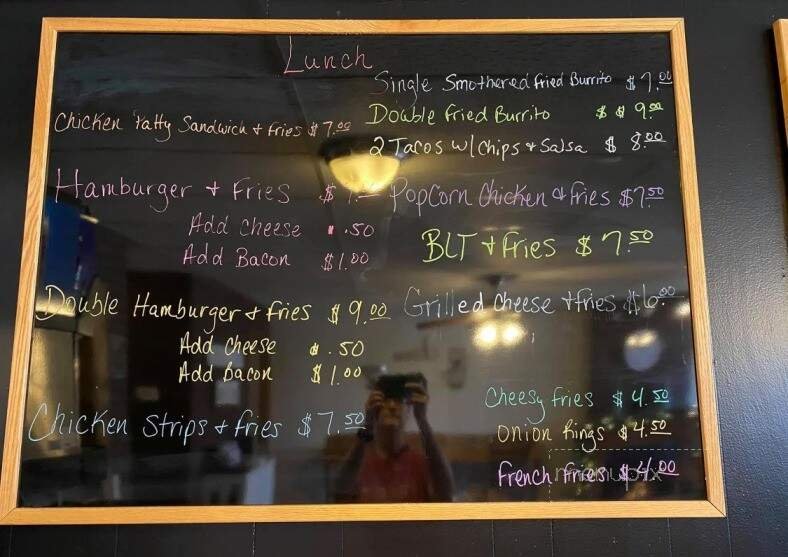 Lunch
Chicken Patty Sandwich + Fries $7.00
Hamburger + Fries $
Add Cheese .50
Add Bacon $1.00
Double Hamburger + fries $9.00
Add Cheese .50
Add Bacon $1.00
Chicken Strips + fries $7.50
Single Smothered Fried Burrito $7.00
Double Fried Burrito $ $ 9.00
2 Tacos w/ Chips + Salsa $ 8.00
PopCorn Chicken & fries $7.50
BLT + fries $7.50
Grilled Cheese + fries $6.00
Cheesy fries $4.50
Onion Rings $4.50
French fries $4.00